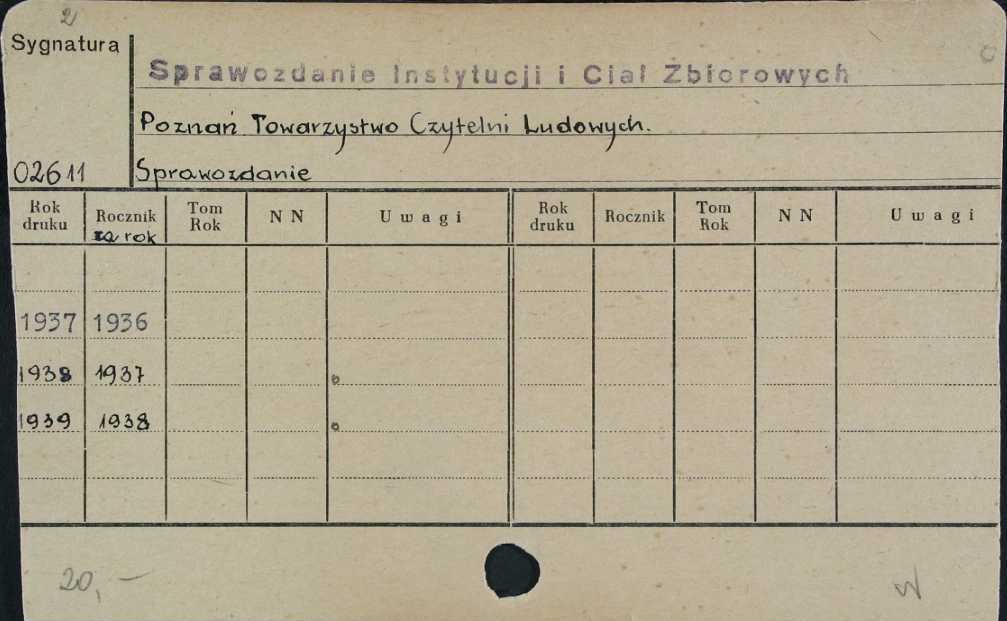 2
Sygnatura
Sprawozdanie Instytucji i Ciał Zbiorowych
Poznań Towarzystwo Czytelni Ludowych.
02611 Sprawozdanie
Rok druku Rocznik za rok Tom Rok N N Uwagi Rok druku Rocznik Tom Rok N N Uwagi
1937 1936
1938 1937
1939 1938
20,-